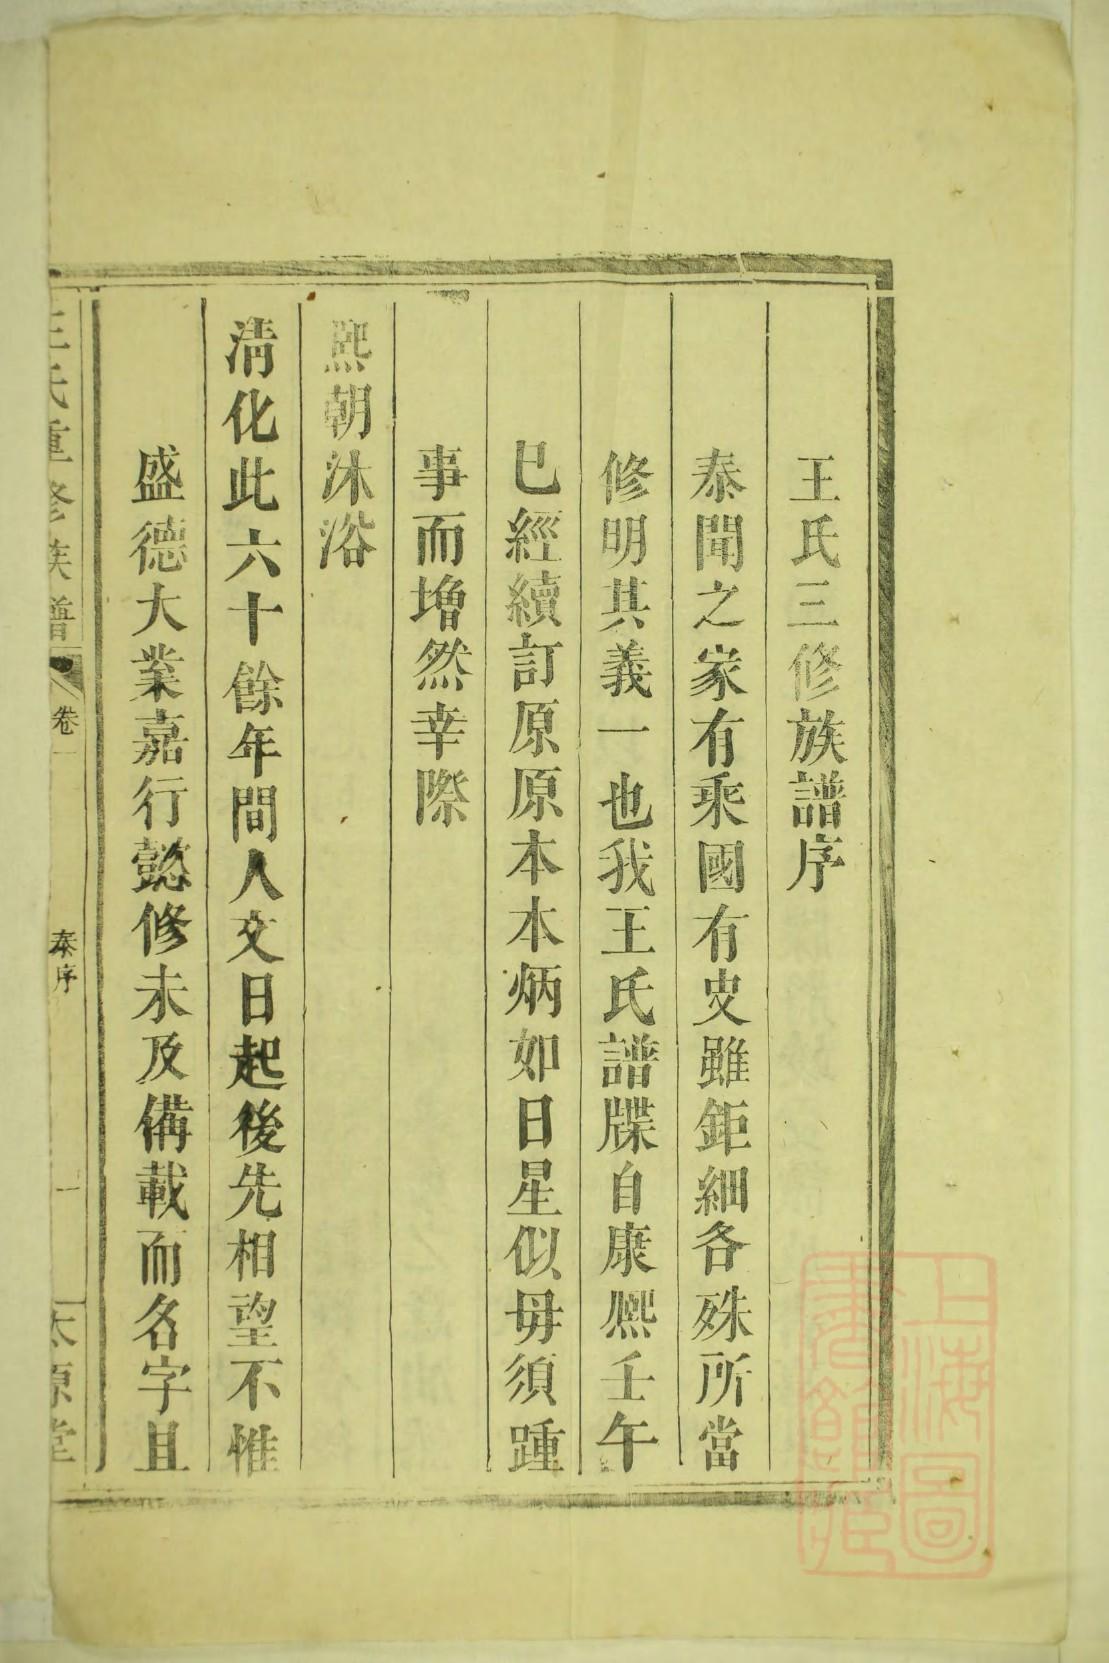 王氏三修族譜序
泰聞之家有乘國有史雖鉅細各殊所當
修明其義一也我王氏譜牒自康熙壬午
已經續訂原原本本炳如日星似毋須踵
事而增然幸際
熙朝沐浴
清化此六十餘年間人文日起後先相望不惟
盛德大業嘉行懿修未及備載而名字且
王氏重修族譜
卷一
泰序
一
太原堂
上海圖書館藏